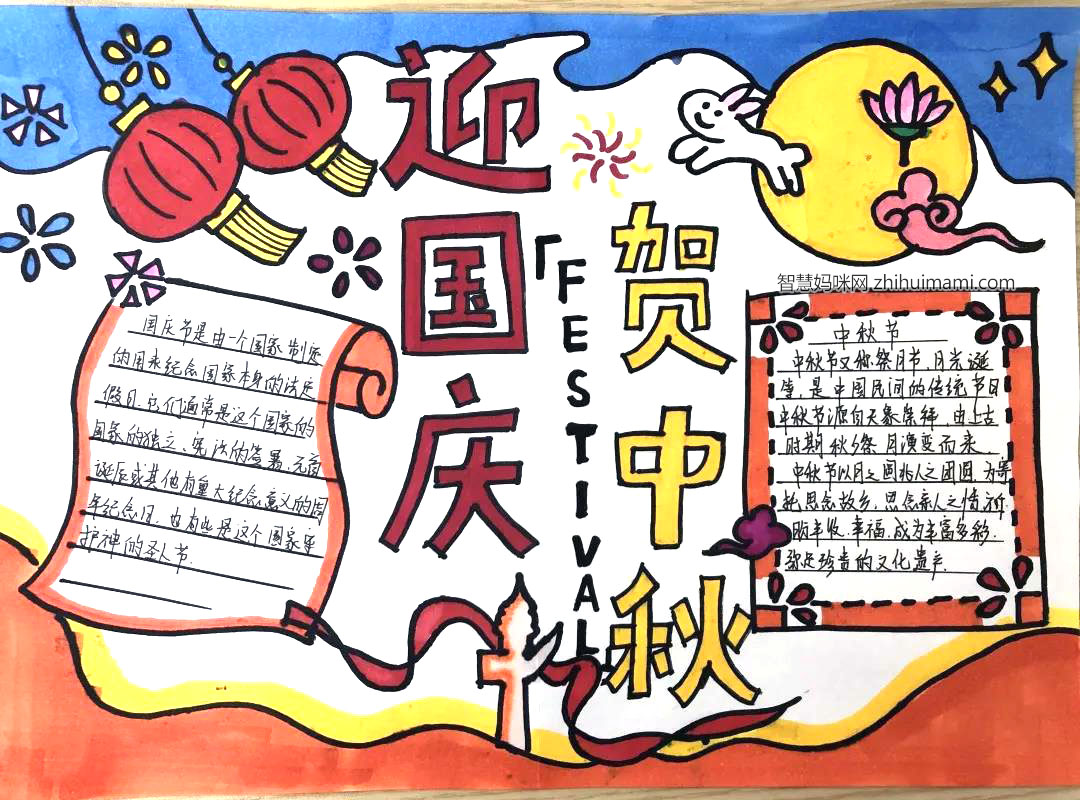 迎国庆
「FESTIVAL
贺中秋
智慧妈咪网 zhihuimami.com
国庆节是由一个国家制定
的用来纪念国家本身的法定
假日,它们通常是这个国家的
国家的独立、宪法的签署、元首
诞辰或其他有重大纪念意义的周
年纪念日,也有些是这个国家守
护神的圣人节.
中秋节
中秋节又称祭月节,月光诞
等,是中国民间的传统节日
中秋节源自天象崇拜,由上古
时期秋夕祭月演变而来
中秋节以月之圆兆人之团圆,为寄
托思念故乡,思念亲人之情,祈
盼丰收、幸福,成为丰富多彩.
弥足珍贵的文化遗产.